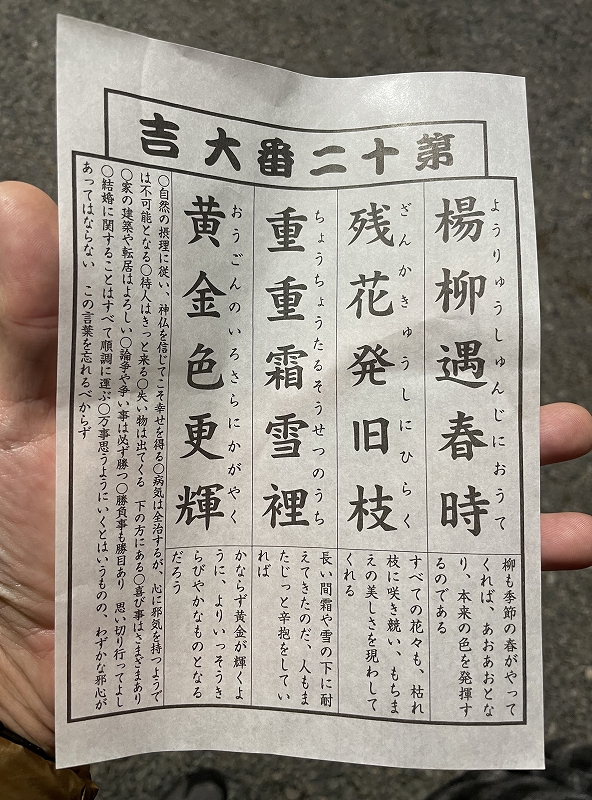 第十二番大吉
楊柳遇春時
ようりゅうしゅんじにおうて
柳も季節の春がやって
くれば、あおあおとな
り、本来の色を発揮す
るのである
残花発旧枝
ざんかきゅうしにひらく
すべての花々も、枯れ
枝に咲き競い、もちま
えの美しさを現わして
くれる
重重霜雪裡
ちょうちょうたるそうせつのうち
長い間霜や雪の下に耐
えてきたのだ、人もま
たじっと辛抱をしてい
れば
黄金色更輝
おうごんのいろさらにかがやく
かならず黄金が輝くよ
うに、よりいっそうき
らびやかなものとなる
だろう
〇自然の摂理に従い、神仏を信じてこそ幸せを得る〇病気は全治するが、心に邪気を持つようで
は不可能となる〇待人はきっと来る〇失い物は出てくる 下の方にある〇喜び事はさまざまあり
〇家の建築や転居はよろしい〇論争や争い事は必ず勝つ〇勝負事も勝目あり 思い切り行ってよし
〇結婚に関することはすべて順調に運ぶ〇万事思うようにいくとはいうものの、わずかな邪心が
あってはならない この言葉を忘れるべからず